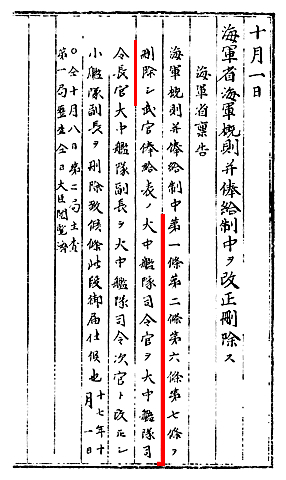 十月一日
海軍省海軍規則并俸給制中ヲ改正刪除ス
海軍省稟告
海軍規則并俸給制中第一條第二條第六條第七條ヲ
刪除シ武官俸給表ノ大中艦隊司令官ヲ大中艦隊司
令長官大中艦隊副長ヲ大中艦隊司令次官ト改正シ
小艦隊副長ヲ刪除致候條此段御届仕候也 十七年十月一日
〇仝十月八日第二局主査
第一局合日大臣閲覧済